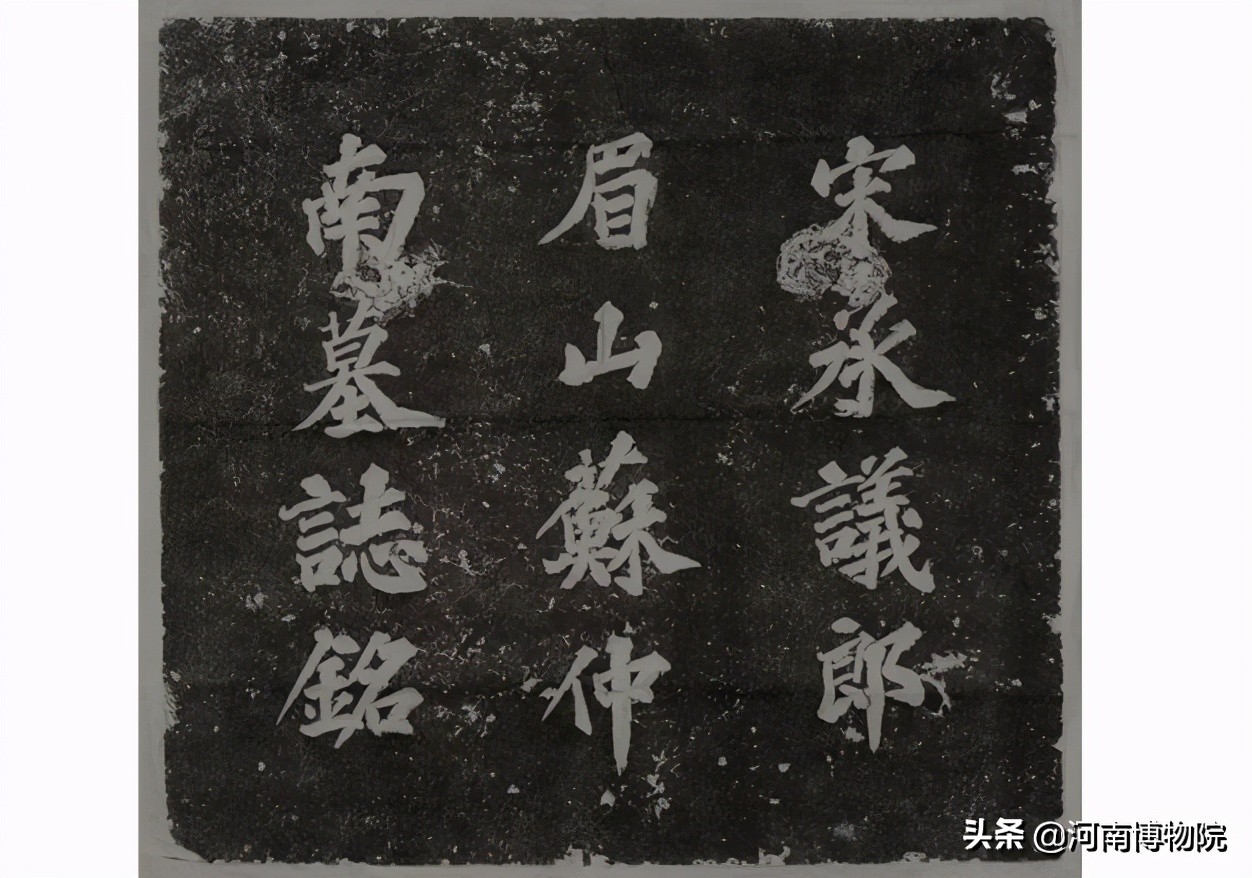 宋承議郎
眉山蘇仲
南墓誌銘
头条 @河南博物院